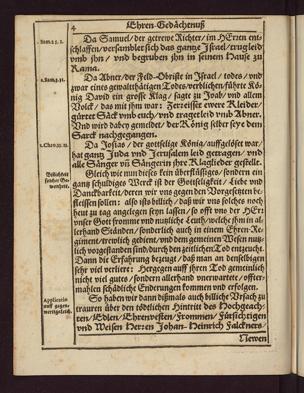 4
Ehren-Gedächtnuß
1. Sam. 25. 1.
Da Samuel/ der getrewe Richter/ im HErrn ent-
schlaffen/ versamblet sich das gantze Israel/ trug leid
vmb jhn/ vnd begruben jhn in seinem Hause zu
Rama.
2. Sam. 3. 31.
Da Abner/ der Feld-Obriste in Israel/ todes/ vnd
zwar eines gewaltthätigen Todes/ verblichen/ führt Kö-
nig David ein grosse Klag/ sagte zu Joab/ vnd allem
Volck/ das mit jhm war: Zerreisset ewere Kleider/
gürtet Säck vmb euch/ vnd traget leid vmb Abner.
Vnd wird dabey gemeldet/ der König selber sey dem
Sarck nachgegangen.
2. Chro. 35.
Da Josias/ der gottselige König/ auffgelöset war/
hat gantz Juda vnd Jerusalem leid getragen/ vnd
alle Sänger vn̄ Sängerin jhre Klaglieder gestellt.
Gleich wie nun dieses kein überflüssiges/ sondern ein
gantz schuldiges Werk ist der Gottseligkeit/ Liebe vnd
Danckbarkeit/ deren wir vns gegen den Vorgesetzten be-
fleissen sollen: also ists billich/ daß wir vns solches noch
heut zu tag angelegen seyn lassen/ so offt vns der HErr
vnser Gott fromme vnd nutzliche Leuth/ welche jhm in al-
lerhand Ständen/ sonderlich auch in einem Ehren-Re-
giment/ trewlich gedienet/ vnd dem gemeinen Wesen nutz-
lich vorgestanden sind/ durch den zeitlichen Tod entzeucht.
Dann die Erfahrung bezeugt/ daß man an denselbigen
sehr viel verliert: Hergegen auff jhren Tod gemeinlich
nicht viel gutes/ sondern allerhand vnerwartete/ offter-
mahlen schädliche Enderungen kommen vnd erfolgen.
Applicatio
So haben wir dann dißmals auch billiche Vrsach zu
trauren über den tödlichen Hintritt des Hochgeach-
ten/ Edlen/ Ehrenvesten/ Frommen/ Fürsichtigen
vnd Weisen Herren Johan-Heinrich Falckners/
Newen